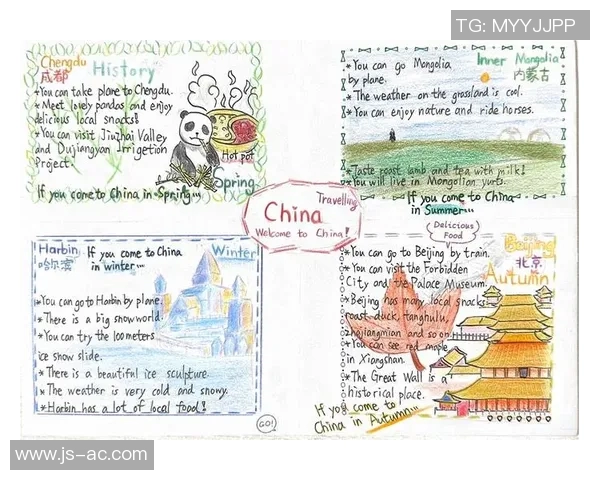 TG: MYYJJPP
Chengdu
成都
History
•You can take plane to Chengdu.
• Meet lovely pandas and enjoy
delicious local snacks!
•You can visit Jiuzhai Valley
and Dujiangyan Irrigetion
Project.
Hot pot
Spring
If you come to China in Spring...
Inner Mongolia
内蒙古
•You can go Mongolia
by plane.
•The weather on the grassland is cool.
•You can enjoy nature and ride horses.
•Taste roast lamb and tea with milk!
•You will live in Mongolian yurts.
If you come to China
in Summer...
Travelling
China
Welcome to China!
Harbin
哈尔滨
If you come to China
in winter...
Winter
•You can go to Harbin by plane.
•There is a big snow world.
•You can try the 100 meters
ice snow slide.
•There is a beautiful ice sculpture.
•The weather is very cold and snowy.
•Harbin has a lot of local food!
Delicious
Food
Beijing
北京
Autumn!
•You can go to Beijing by train.
•You can visit the Forbidden
City and the Palace Museum.
•Beijing has many local snacks
roast duck, tanghulu,
zhajiangmian and so on.
•You can see red maple
in Xiangshan.
•The Great Wall is a
historical place.
If you come to
China in Autumn...
GO!
www.js-ac.com